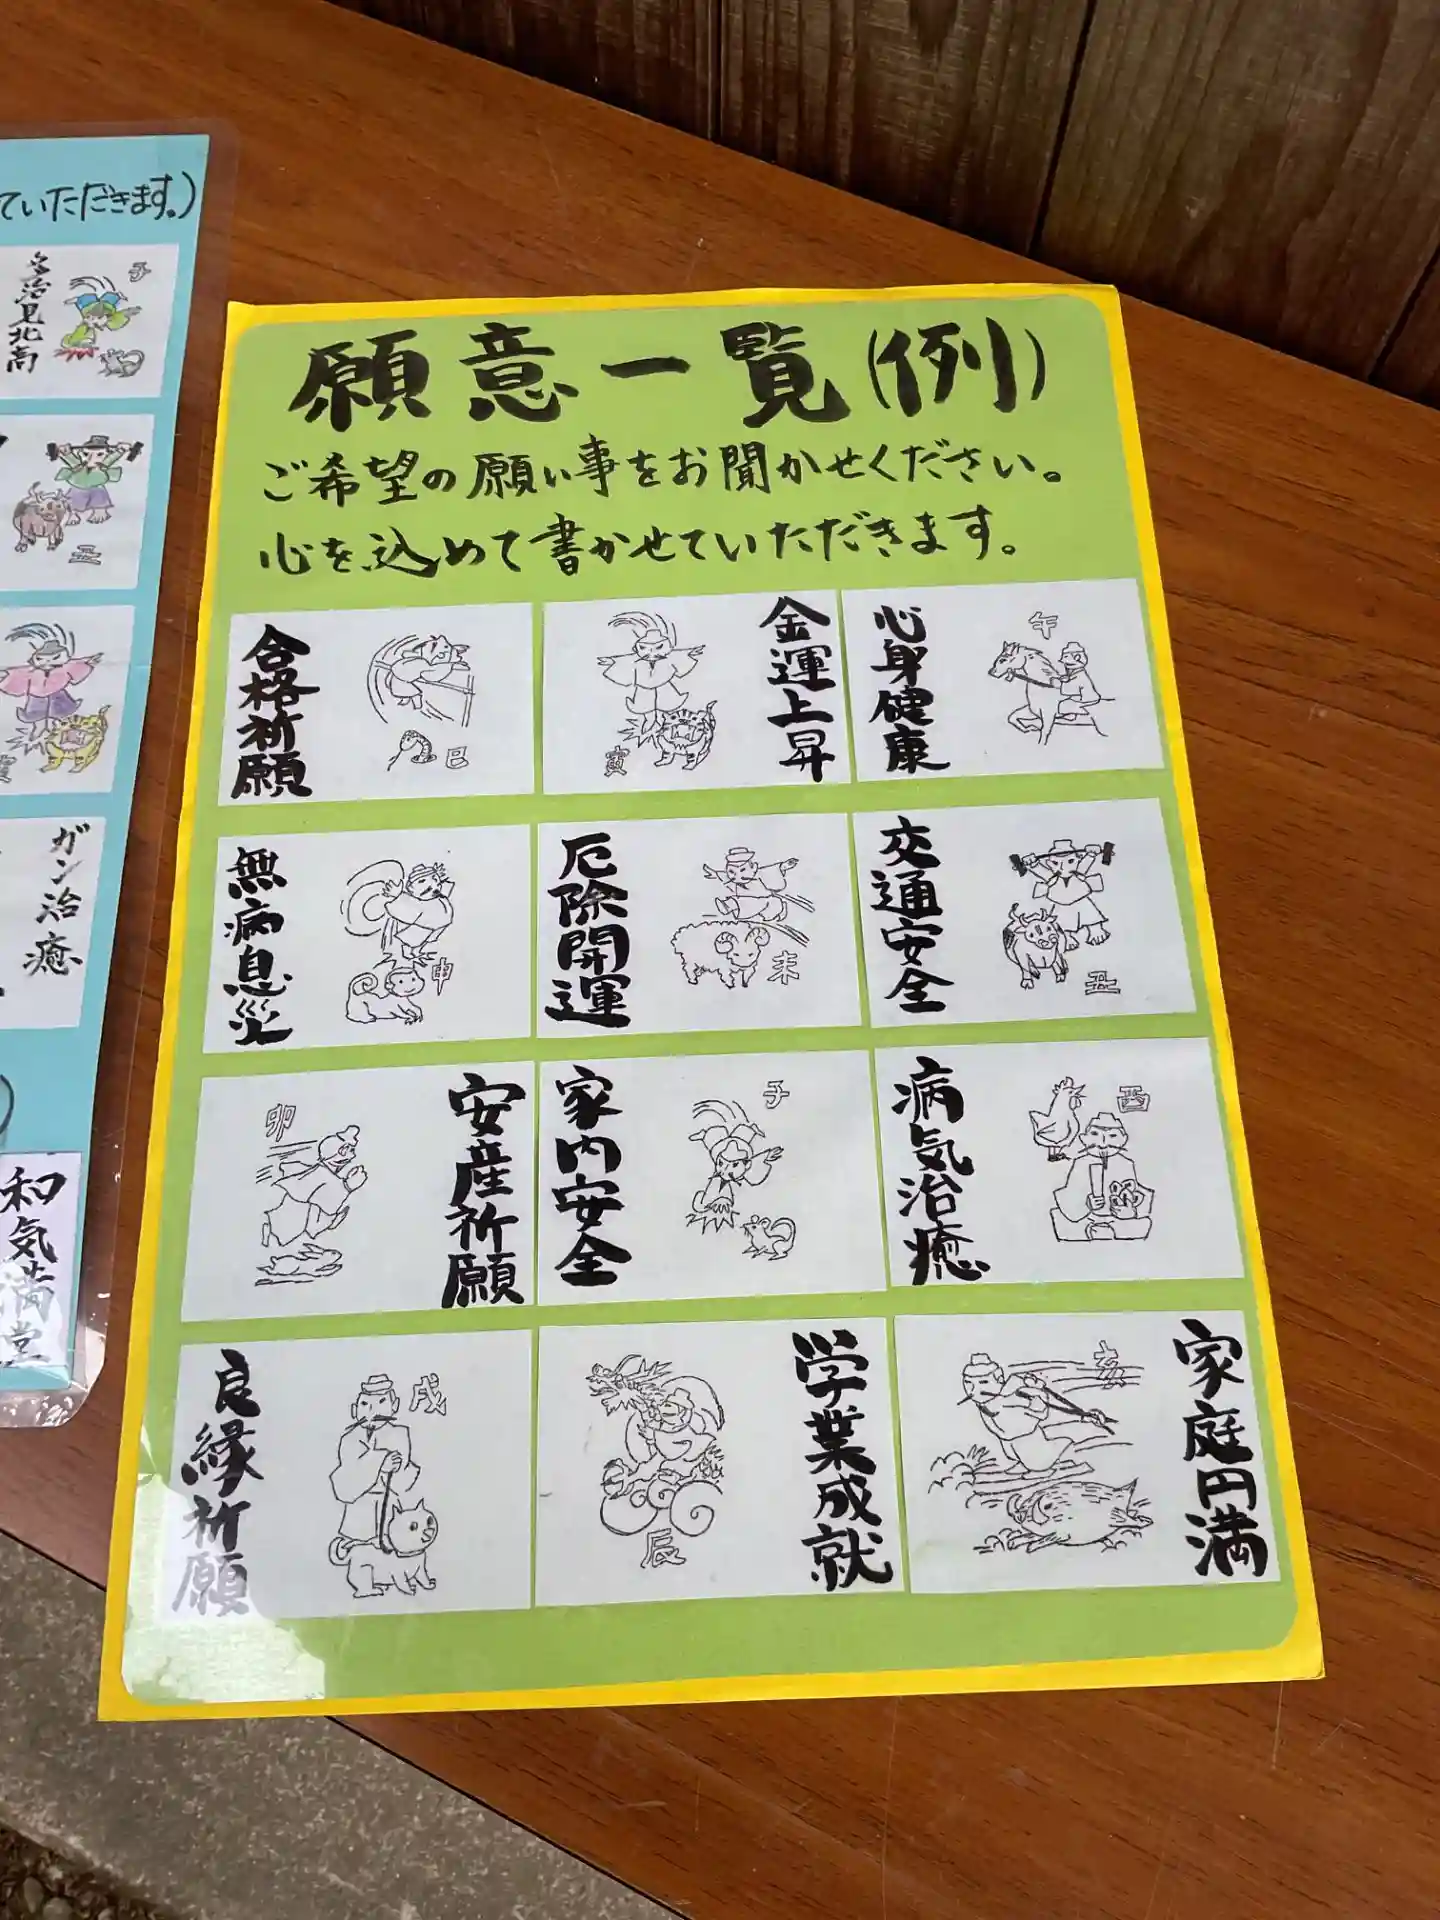 ていただきます。)
子
多治見北高
丑
寅
ガン治癒
和気満堂
願意一覧(例)
ご希望の願い事をお聞かせください。
心を込めて書かせていただきます。
合格祈願
巳
寅
金運上昇
心身健康
午
無病息災
申
厄除開運
未
交通安全
丑
卯
安産祈願
家内安全
子
病気治癒
酉
良縁祈願
戌
辰
学業成就
亥
家庭円満